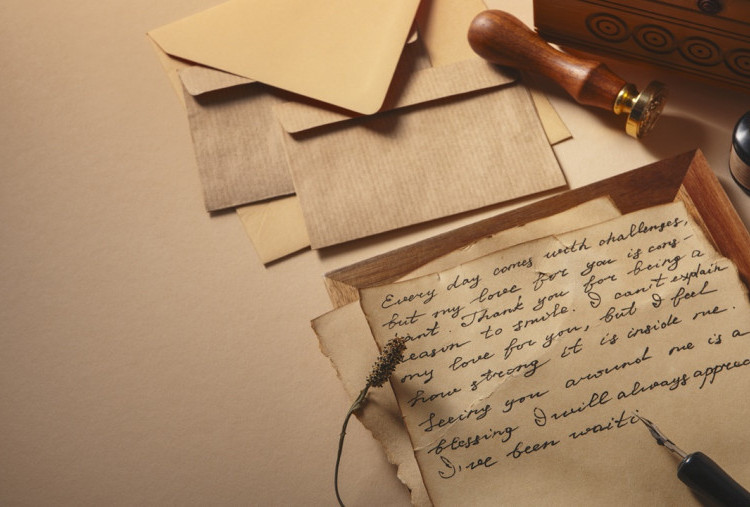 Every day comes with challenges,
but my love for you is cons-
tant. Thank you for being a
reason to smile. I can't explain
my love for you, but I feel
how strong it is inside me.
Seeing you around me is a
blessing I will always apprec
I've been waiti